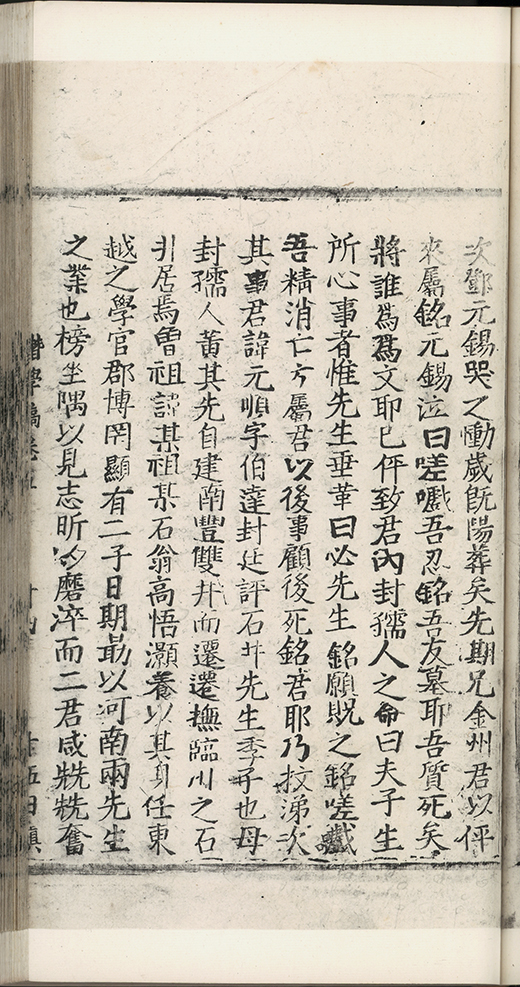 次鄧元錫哭之慟歲既陽葬矣先期兄金州君以伻
來屬銘元錫泣曰嗟嚱吾忍銘吾友墓耶吾質死矣
將誰為為文耶已伻致君內封孺人之命曰夫子生
所心事者惟先生垂革曰必先生銘願貺之銘嗟戲
吾精消亡方屬君以後事顧後死銘君耶乃抆涕次
其事君諱元順字伯蓬封廷評石井先生季子也母
封孺人黃其先自建南豐雙井而遷遷撫臨川之石
井居焉曾祖諱某祖某石翁高悟灝養以其身任東
越之學官郡博罔顯有二子日期勗以河南兩先生
之業也榜坐隅以見志昕夕磨淬而二君咸兟兟奮
潛學稿卷